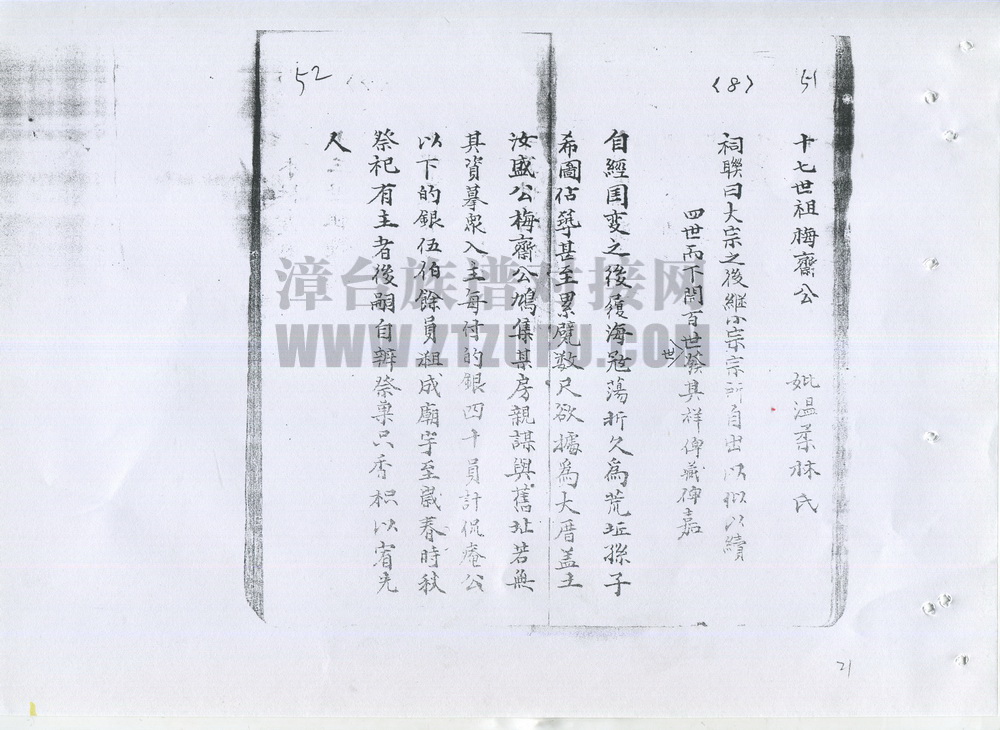 51
十七世祖晦齋公　妣温柔林氏
(8)
祠聯曰大宗之後継小宗宗所自出以似以續
四世而下開百世發其祥俾臧俾嘉
世
自經国变之後履海冦蕩折久為荒坵孫子
希圖佔築甚至累甓数尺欲據為大厝盖主
汝盛公梅齋公鳩集某房親謀興舊址若無
其資募眾入主每付的銀四十員計侃庵公
以下的銀伍伯餘員租成廟宇至嵗春時秋
祭祀有主者後嗣自辦祭菓只香枳以賓先
人
52
21
漳台族谱对接网
WWW.ZTZUPU.COM